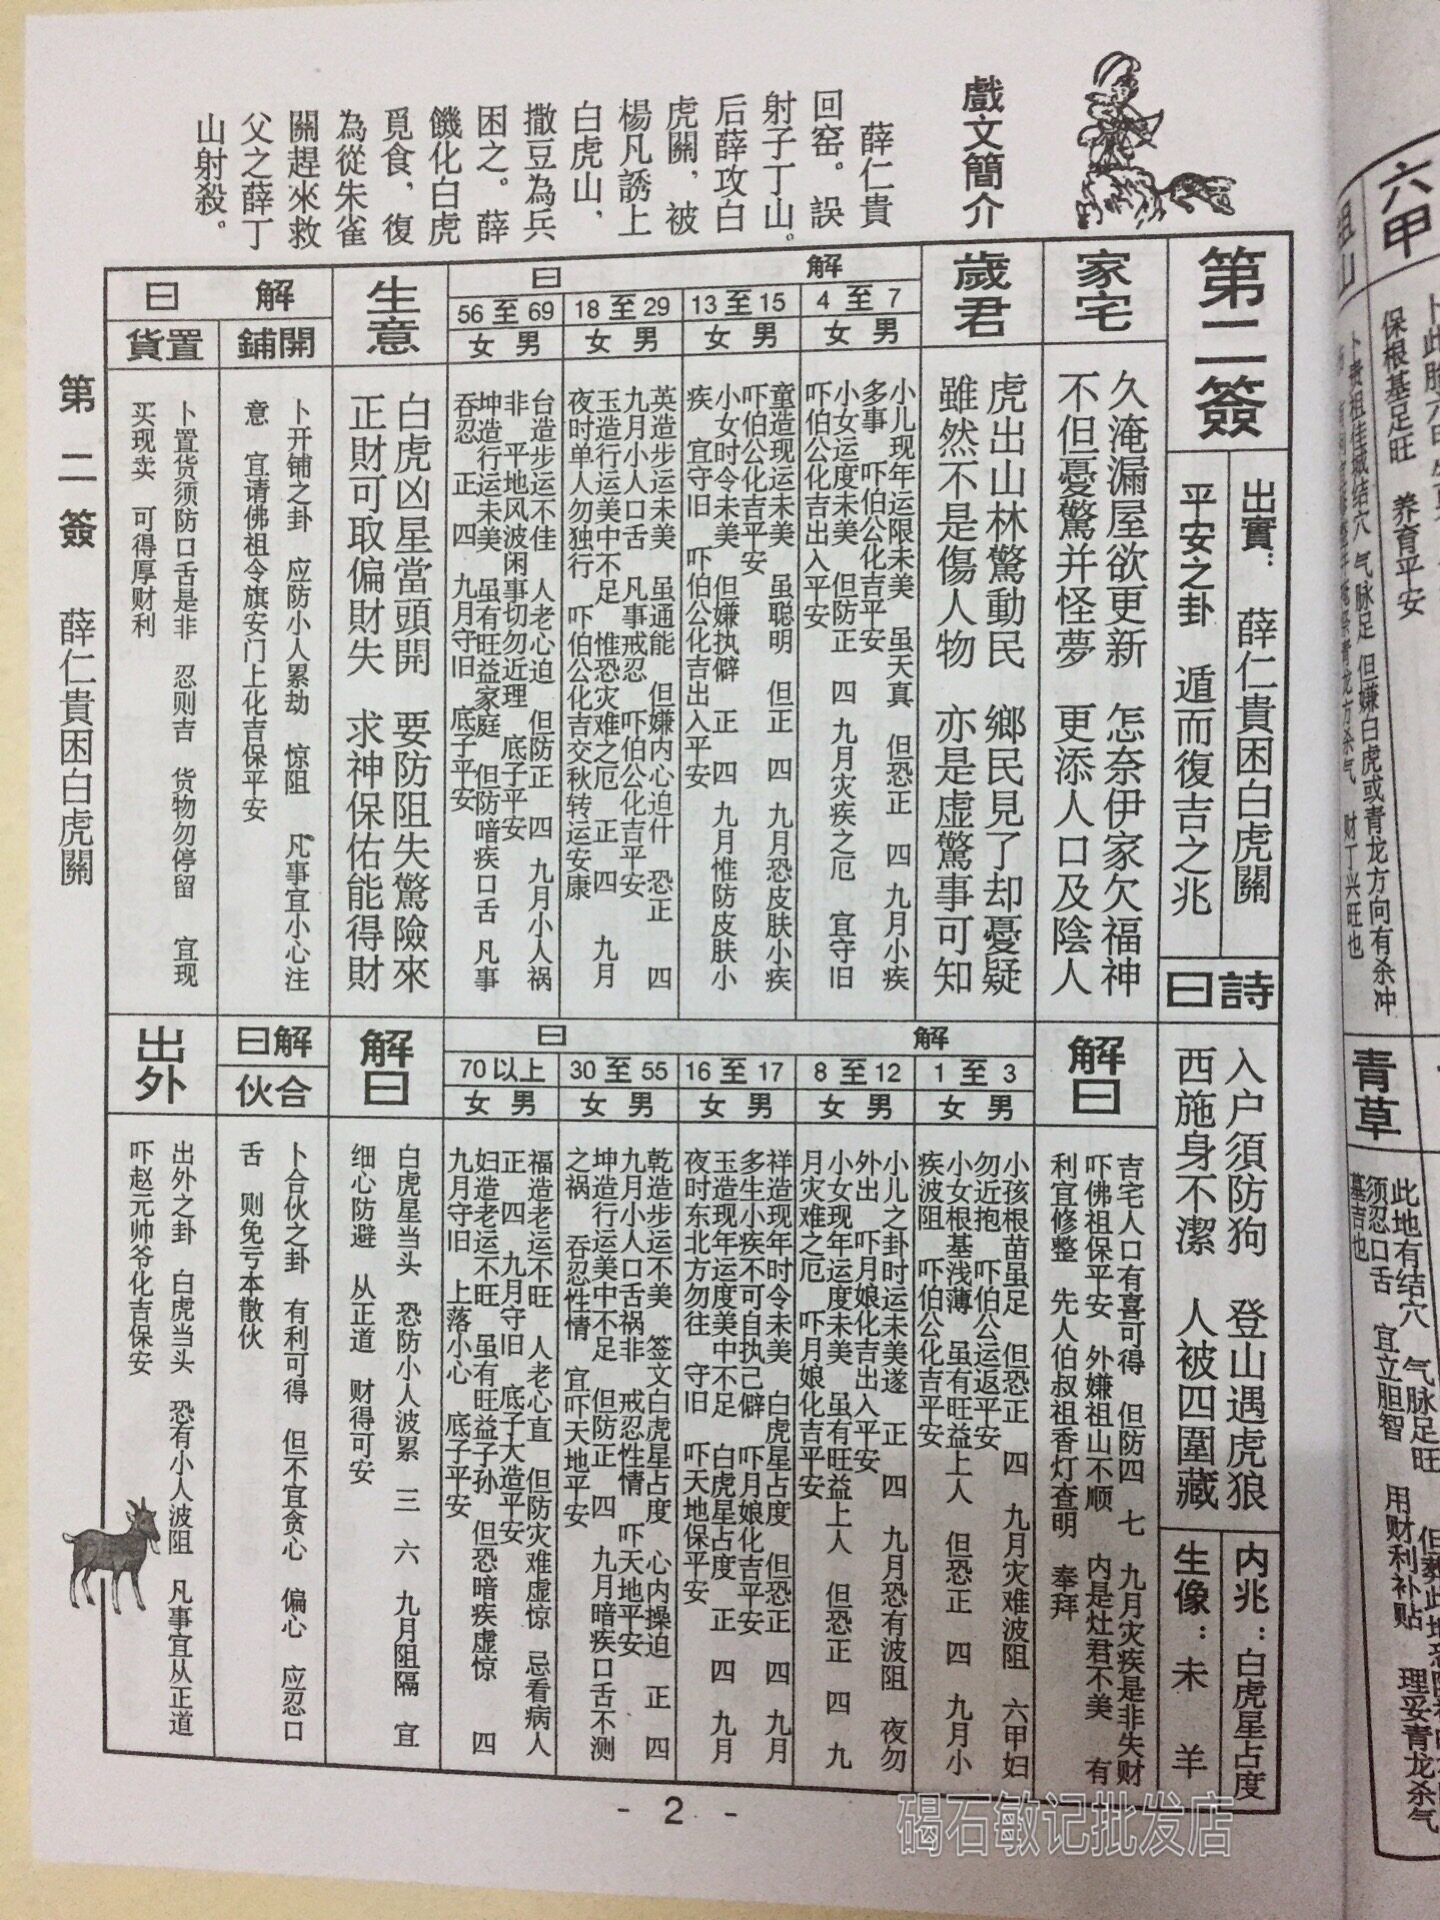 戲文簡介
薛仁貴
回窑。誤
射子丁山。
后薛攻白
虎關，被
楊凡誘上
白虎山，
撒豆為兵
困之。薛
饑化白虎
覓食，復
為從朱雀
關趕來救
父之薛丁
山射殺。
第二簽
出實：薛仁貴困白虎關
平安之卦 遁而復吉之兆
詩曰
入户須防狗 登山遇虎狼
西施身不潔 人被四圍藏
内兆：白虎星占度
生像：未 羊
家宅
久淹漏屋欲更新 怎奈伊家欠福神
不但憂驚并怪夢 更添人口及陰人
解曰
吉宅人口有喜可得 但防四 七 九月灾疾是非失财
吓佛祖保平安 外嫌祖山不顺 内是灶君不美 有
利宜修整 先人伯叔祖香灯查明 奉拜
歲君
虎出山林驚動民 鄉民見了却憂疑
雖然不是傷人物 亦是虚驚事可知
解曰
1至3
男 女
小孩根苗虽足 但恐正 四 九月灾难波阻 六甲妇
勿近抱 吓伯公运返平安
小女根基浅薄 虽有旺益上人 但恐正 四 九月小
疾波阻 吓伯公化吉平安
解曰
4至7
男 女
小儿现年运限未美 虽天真 但恐正 四 九月小疾
多事 吓伯公化吉平安
小女运度未美 但防正 四 九月灾疾之厄 宜守旧
吓伯公化吉出入平安
8至12
男 女
小儿之卦时运未美遂 正 四 九月恐有波阻 夜勿
外出 吓月娘化吉出入平安
小女现年运度未美 虽有旺益上人 但恐正 四 九
月灾难之厄 吓月娘化吉平安
13至15
男 女
童造现运未美 虽聪明 但正 四 九月恐皮肤小疾
吓伯公化吉平安
小女时令未美 但嫌执僻 正 四 九月惟防皮肤小
疾 宜守旧 吓伯公化吉出入平安
16至17
男 女
祥造现年时令未美 白虎星占度 但恐正 四 九月
多生小疾不可自执己僻 吓月娘化吉平安
玉造现年运度美中不足 白虎星占度 正 四 九月
夜时东北方勿往 守旧 吓天地保平安
18至29
男 女
英造步运未美 但嫌内心迫什 恐正 四
九月小人口舌 凡事戒忍 吓伯公化吉平安
玉造行运美中不足 惟恐灾难之厄 正 四 九月
夜时单人勿独行 吓伯公化吉交秋转运安康
30至55
男 女
乾造步运不美 签文白虎星占度 心内操迫 正 四
九月小人口舌祸非 戒忍性情 吓天地平安
坤造行运美中不足 但防正 四 九月暗疾口舌不测
之祸 吞忍性情 宜吓天地平安
56至69
男 女
台造步运不佳 人老心迫 但防正 四 九月小人祸
非 平地风波闲事切勿近理 底子平安
坤造行运未美 虽有旺益家庭 但防暗疾口舌 凡事
吞忍 正 四 九月守旧 底子平安
70以上
男 女
福造老运不旺 人老心直 但防灾难虚惊 忌看病人
正 四 九月守旧 底子大造平安
妇造老运不旺 虽有旺益子孙 但恐暗疾虚惊 四
九月守旧 上落小心 底子平安
生意
白虎凶星當頭開 要防阻失驚險來
正財可取偏財失 求神保佑能得財
解曰
白虎星当头 恐防小人波累 三 六 九月阻隔 宜
细心防避 从正道 财得可安
解曰
開鋪
卜开铺之卦 应防小人累劫 惊阻 凡事宜小心注
意 宜请佛祖令旗安门上化吉保平安
置貨
卜置货须防口舌是非 忍则吉 货物勿停留 宜现
买现卖 可得厚财利
解曰
合伙
卜合伙之卦 有利可得 但不宜贪心 偏心 应忍口
舌 则免亏本散伙
出外
出外之卦 白虎当头 恐有小人波阻 凡事宜从正道
吓赵元帅爷化吉保安
第二簽 薛仁貴困白虎關
- 2 -
碣石敏记批发店
六甲
保根基足旺 养育平安
青草
此地有结穴 气脉足旺
须忍口舌 宜立胆智 用财利补贴 理妥青龙杀气
墓吉也